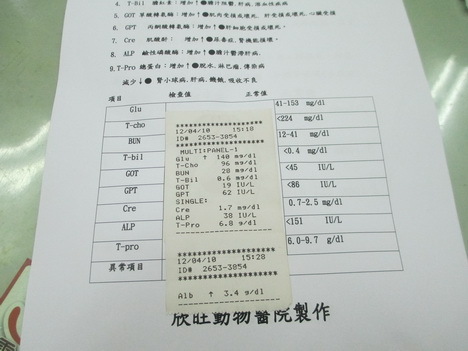 4. T-Bil 膽紅素：增加↑●膽汁阻塞,肝病,溶血性疾病
5. GOT 草酸轉氨酶：增加↑●肌肉受損或壞死, 肝受損或壞死,心臟受損
6. GPT 丙酮酸轉氨酶：增加↑●肝細胞受損或壞死,
7. Cre 肌酸酐：增加↑●尿毒症,腎機能損壞,
8. ALP 鹼性磷酸酶：增加↑●膽汁鬱滯肝病,
9.T-Pro 總蛋白：增加↑●脫水,淋巴瘤,傳染病
減少↓● 腎小球病,肝病,饑餓,吸收不良
項目 檢查值 正常值
Glu 41-153 mg/dl
T-cho <224 mg/dl
BUN 12-41 mg/dl
T-bil <0.4 mg/dl
GOT <45 IU/L
GPT <86 IU/L
Cre 0.7-2.5 mg/dl
ALP <151 IU/L
T-pro 6.0-9.7 g/dl
異常項目
********************
12/04/10 15:18
ID# 2653-3854
********************
MULTI:PANEL-1
Glu ↑ 140 mg/dl
T-Cho 96 mg/dl
BUN 28 mg/dl
T-Bil 0.6 mg/dl
GOT 19 IU/L
GPT 62 IU/L
SINGLE:
Cre 1.7 mg/dl
ALP 38 IU/L
T-Pro 6.8 g/dl
--------------------
********************
12/04/10 15:28
ID# 2653-3854
********************
Alb ↑ 3.4 g/dl
--------------------
欣旺動物醫院製作